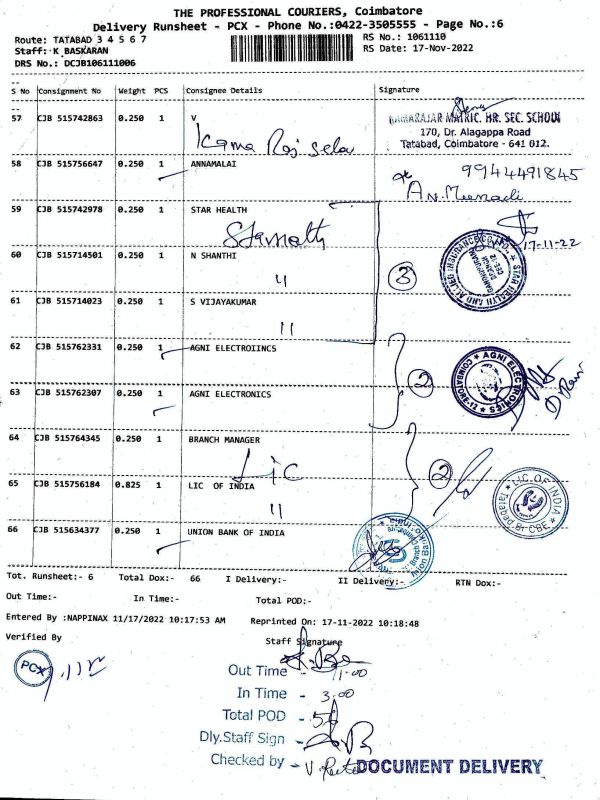 THE PROFESSIONAL COURIERS, Coimbatore
Delivery Runsheet - PCX - Phone No.:0422-3505555 - Page No.:6
Route: TATABAD 3 4 5 6 7
RS No.: 1061110
Staff: K BASKARAN
RS Date: 17-Nov-2022
DRS No.: DCJB106111006
S No Consignment No Weight PCS Consignee Details Signature
57 CJB 515742863 0.250 1 V
KAMARAJAR MATRIC. HR. SEC. SCHOOL
170, Dr. Alagappa Road
Tatabad, Coimbatore - 641 012.
58 CJB 515756647 0.250 1 ANNAMALAI
9944491845
59 CJB 515742978 0.250 1 STAR HEALTH
17-11-22
60 CJB 515714501 0.250 1 N SHANTHI
3
STAR HEALTH AND ALLIED INSURANCE CO. LTD.
61 CJB 515714023 0.250 1 S VIJAYAKUMAR
62 CJB 515762331 0.250 1 AGNI ELECTROIINCS
2
AGNI ELECTRONICS
63 CJB 515762307 0.250 1 AGNI ELECTRONICS
64 CJB 515764345 0.250 1 BRANCH MANAGER
LIC
2
65 CJB 515756184 0.825 1 LIC OF INDIA
L.I.C. OF INDIA
66 CJB 515634377 0.250 1 UNION BANK OF INDIA
Tot. Runsheet:- 6 Total Dox:- 66 I Delivery:- II Delivery:- RTN Dox:-
Out Time:- In Time:- Total POD:-
Entered By :NAPPINAX 11/17/2022 10:17:53 AM Reprinted On: 17-11-2022 10:18:48
Verified By Staff Signature
PCX
Out Time - 11.00
In Time - 3.00
Total POD -
Dly.Staff Sign -
Checked by -
DOCUMENT DELIVERY